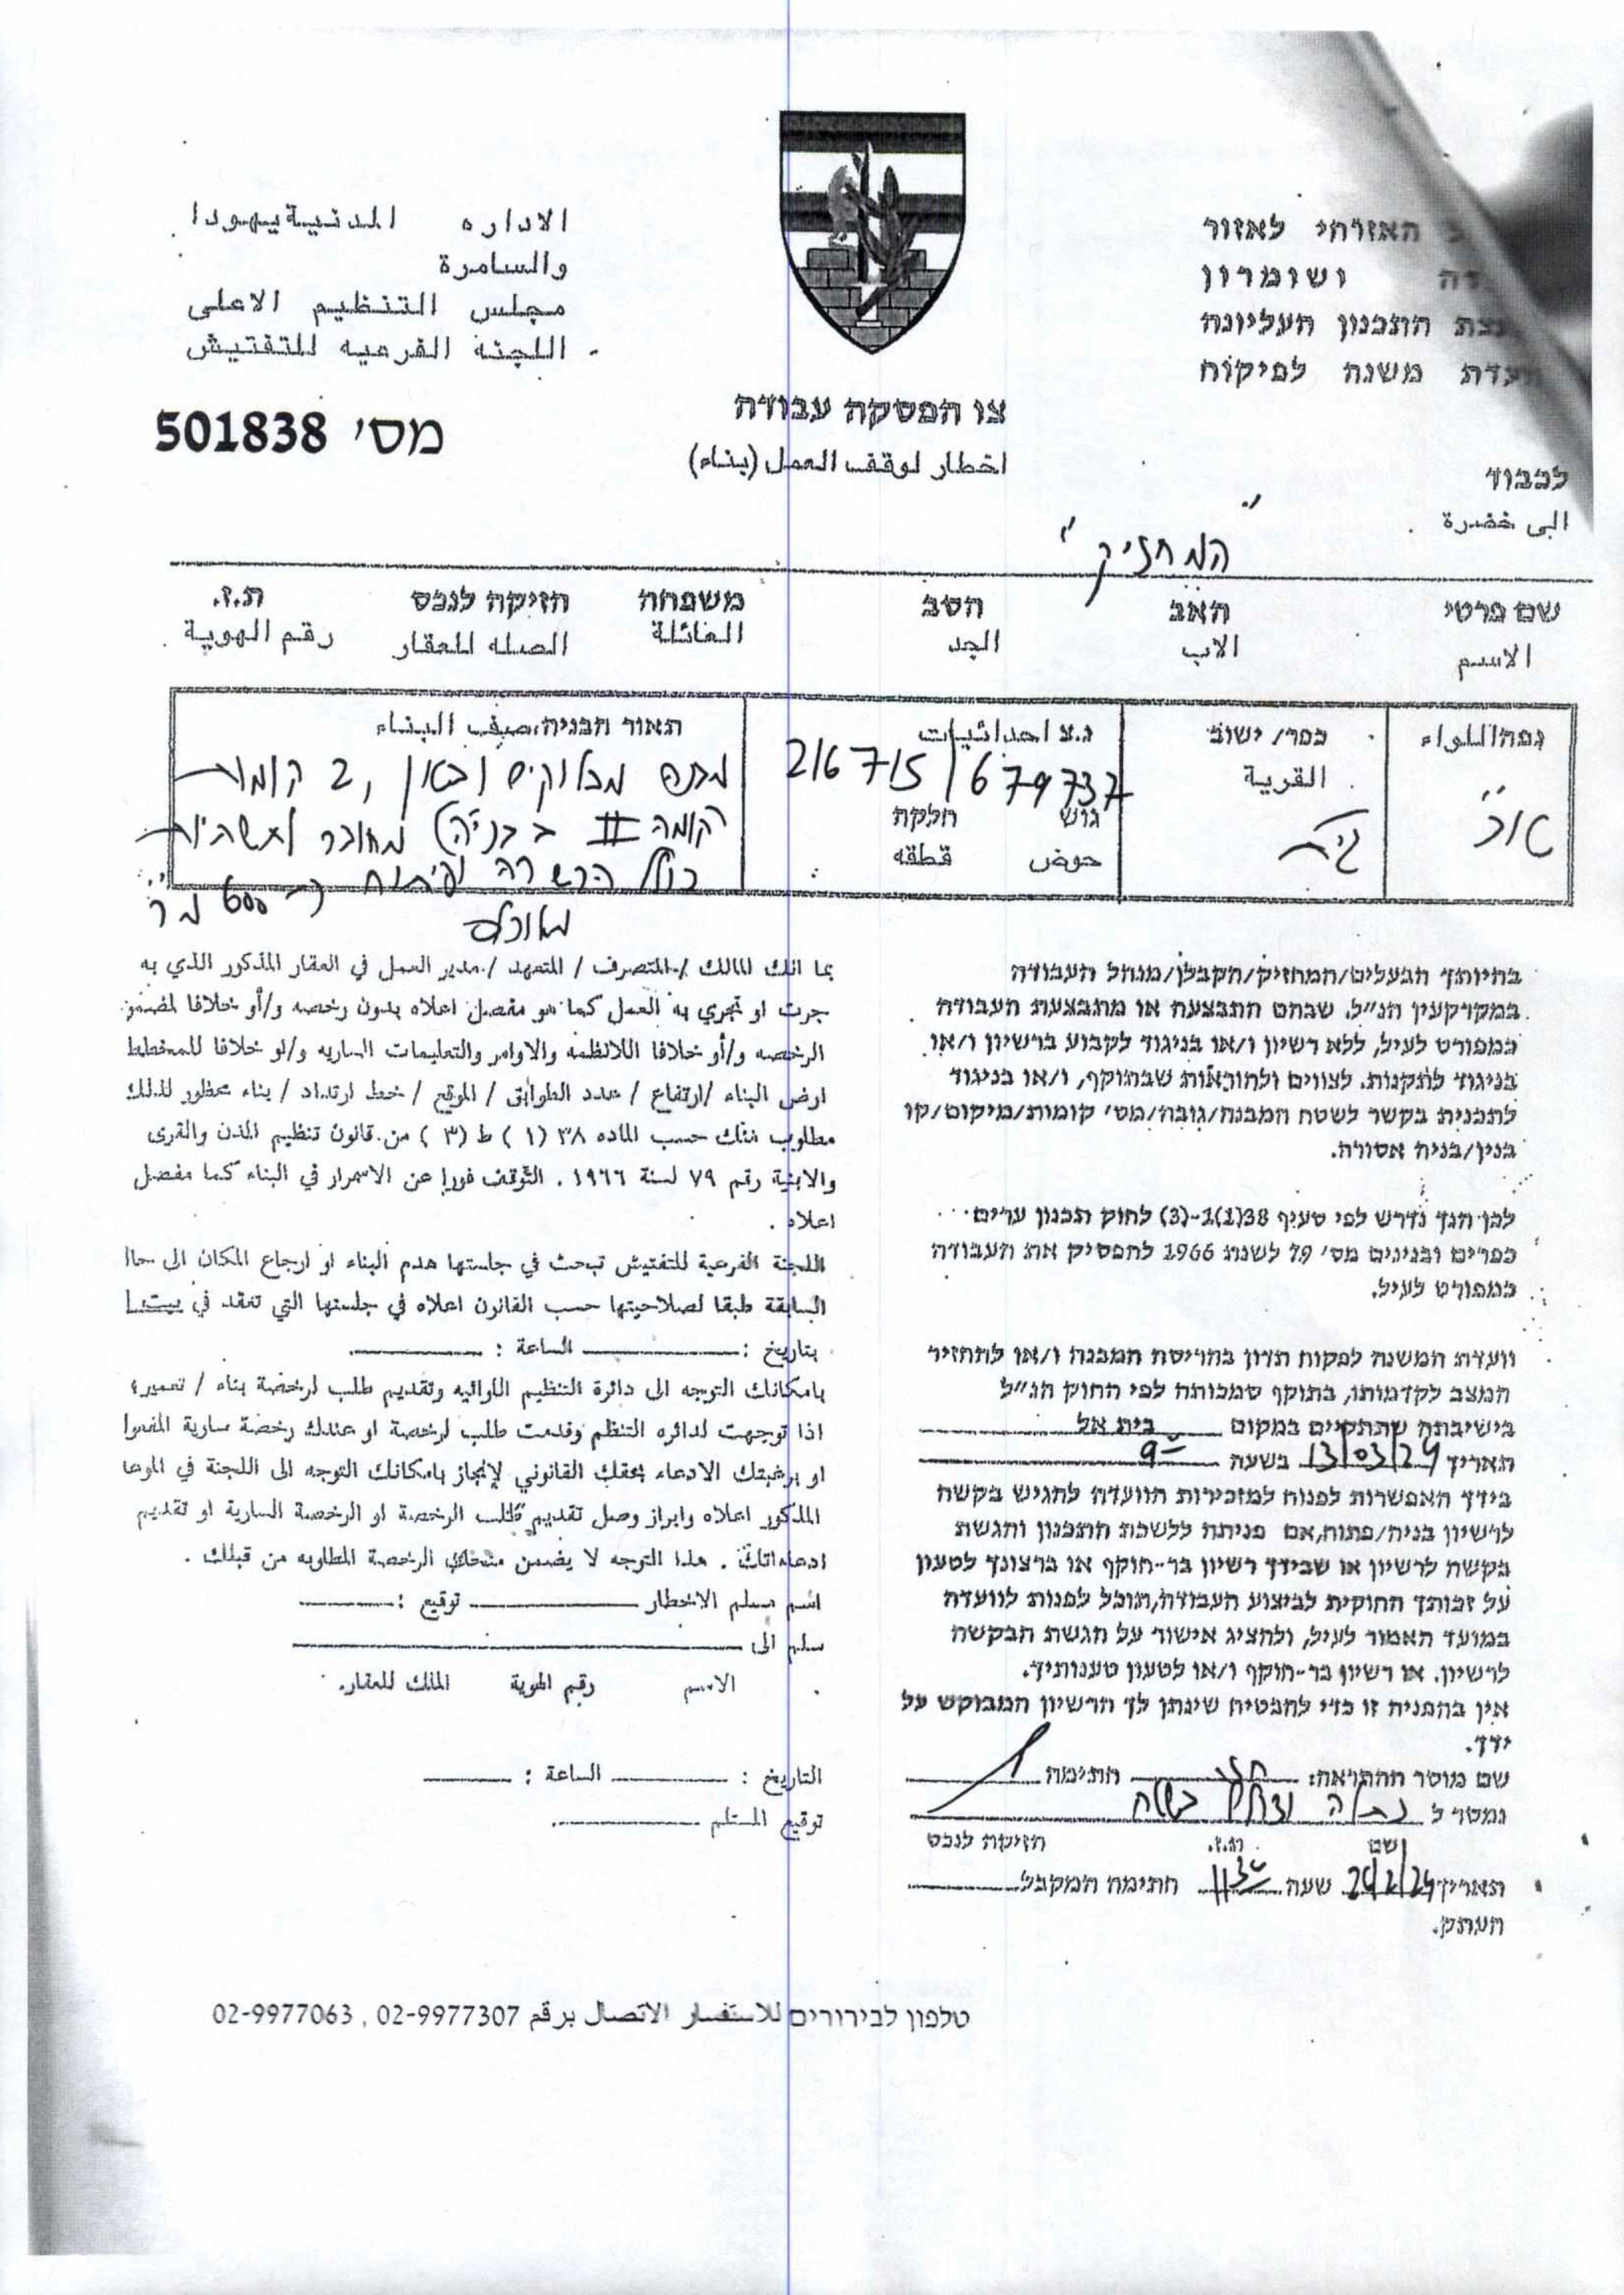 האזרחי לאזור
ושומרון
התכנון העליונה
משנה לפיקוח
الاداره المدنية يهودا
والسامرة
مجلس التنظيم الاعلى
اللجنة الفرعيه للتفتيش
צו הפסקה עבודה
اخطار لوقف العمل (بناء)
מס' 501838
לכבוד
الى حضرة
"המחזיק"
שם פרטי האב הסב משפחה חזיקה לנכס ת.ז.
الاسم الاب الجد العائلة الصله للعقار رقم الهوية
נפה/اللواء כפר/ישוב נ.צ احداثيات תאור הבניה/وصف البناء
القرية
216715/679737
גוש חלקה
حوض قطعه
מבלוקים ובטון, 2 קומות
קומה II בבניה) מחובר לתשתיות
כולל הכשרה כ-600 מ"ר
בהיותך הבעלים/המחזיק/הקבלן/מנהל העבודה
במקרקעין הנ"ל, שבהם התבצעה או מתבצעת העבודה
כמפורט לעיל, ללא רשיון ו/או בניגוד לקבוע ברשיון ו/או
בניגוד לתקנות, לצווים ולהוראות שבתוקף, ו/או בניגוד
לתכנית בקשר לשטח המבנה/גובה/מס' קומות/מיקום/קו
בנין/בניה אסורה.
לכן הנך נדרש לפי סעיף 38(1)1-(3) לחוק תכנון ערים
כפרים ובנינים מס' 79 לשנת 1966 להפסיק את העבודה
כמפורט לעיל.
וועדת המשנה לפקוח תדון בהריסת המבנה ו/או להחזיר
המצב לקדמותו, בתוקף סמכותה לפי החוק הנ"ל
בישיבתה שתתקיים במקום בית אל
תאריך 13/03/24 בשעה 9
בידך האפשרות לפנות למזכירות הוועדה להגיש בקשה
לרשיון בניה/פתוח,אם פניתה ללשכת התכנון והגשת
בקשה לרשיון או שבידך רשיון בר-תוקף או ברצונך לטעון
על זכותך החוקית לביצוע העבודה,תוכל לפנות לוועדה
במועד האמור לעיל, ולהציג אישור על הגשת הבקשה
לרשיון. או רשיון בר-תוקף ו/או לטעון טענותיך.
אין בהפניה זו כדי להבטיח שינתן לך הרשיון המבוקש על
ידך.
שם מוסר ההתראה: חתימה
נמסר ל
שם ת.ז. חזיקה לנכס
תאריך שעה 1130 חתימת המקבל
העתק.
بما انك المالك / المتصرف / المتعهد / مدير العمل في العقار المذكور الذي به
جرت او تجري به العمل كما هو مفصل اعلاه بدون رخصه و/أو خلافا لمضمون
الرخصه و/أو خلافا اللانظمه والاوامر والتعليمات الساريه و/او خلافا للمخطط
ارض البناء /ارتفاع / عدد الطوابق / الموقع / خط ارتداد / بناء محظور لذلك
مطلوب منك حسب الماده ٣٨ (١) ط (٣) من قانون تنظيم المدن والقرى
والابنية رقم ٧٩ لسنة ١٩٦٦ . التوقف فورا عن الاسمرار في البناء كما مفصل
اعلاه .
اللجنة الفرعية للتفتيش تبحث في جلستها هدم البناء او ارجاع المكان الى حال
السابقة طبقا لصلاحيتها حسب القانون اعلاه في جلستها التي تعقد في بيت ا
بتاريخ : الساعة :
بامكانك التوجه الى دائرة التنظيم اللوائيه وتقديم طلب لرخصة بناء / تعمير؛
اذا توجهت لدائره التنظم وقدمت طلب لرخصة او عندك رخصة سارية المفعوا
او برغبتك الادعاء بحقك القانوني لإنجاز بامكانك التوجه الى اللجنة في الموعا
المذكور اعلاه وابراز وصل تقديم طلب الرخصة او الرخصة السارية او تقديم
ادعاءاتك . هذا التوجه لا يضمن منحك الرخصة المطلوبه من قبلك .
اسم مسلم الاخطار توقيع :
سلم الى
الاسم رقم الهوية المالك للعقار.
التاريخ : الساعة :
توقيع المستلم
טלפון לבירורים للاستفسار الاتصال برقم 02-9977063 , 02-9977307